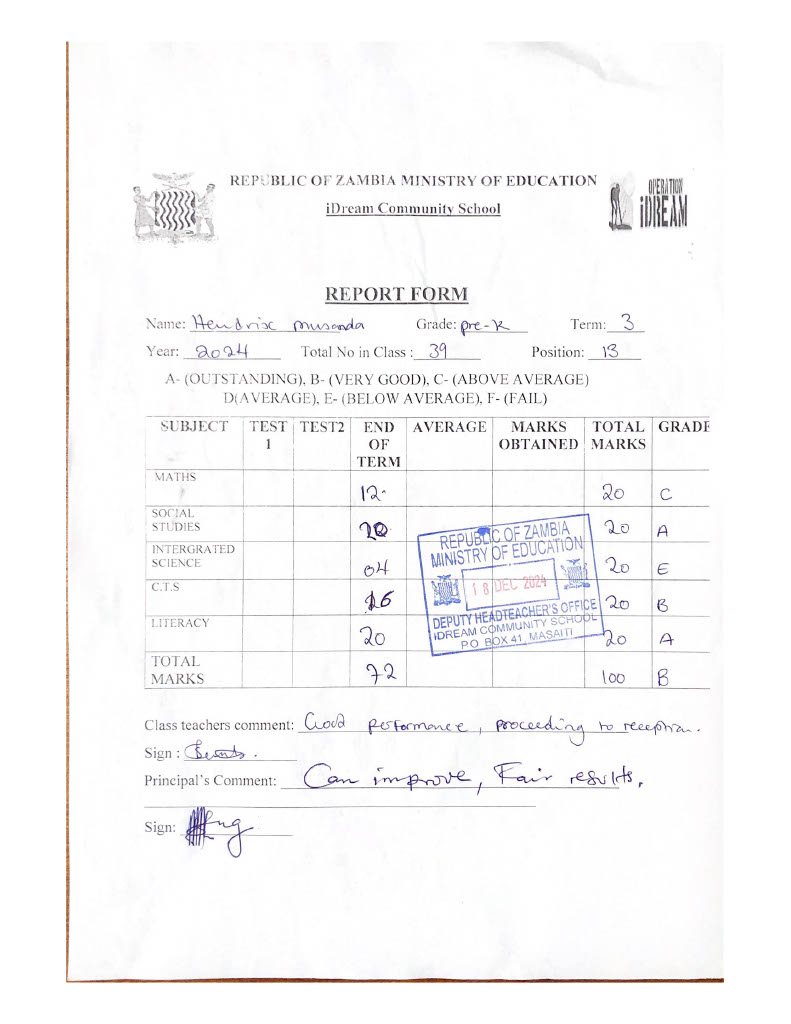 REPUBLIC OF ZAMBIA MINISTRY OF EDUCATION
iDream Community School
OPERATION
iDREAM
REPORT FORM
Name: Hendrix musonda Grade: pre-K Term: 3
Year: 2024 Total No in Class : 39 Position: 13
A- (OUTSTANDING), B- (VERY GOOD), C- (ABOVE AVERAGE)
D(AVERAGE), E- (BELOW AVERAGE), F- (FAIL)
SUBJECT TEST 1 TEST2 END OF TERM AVERAGE MARKS OBTAINED TOTAL MARKS GRADE
MATHS 12 20 C
SOCIAL STUDIES 20 20 A
INTERGRATED SCIENCE 04 20 E
C.T.S 16 20 B
LITERACY 20 20 A
TOTAL MARKS 72 100 B
REPUBLIC OF ZAMBIA
MINISTRY OF EDUCATION
18 DEC 2024
DEPUTY HEADTEACHER'S OFFICE
IDREAM COMMUNITY SCHOOL
P.O. BOX 41, MASAITI
Class teachers comment: Good performance, proceeding to reception.
Sign :
Principal's Comment: Can improve, Fair results,
Sign: